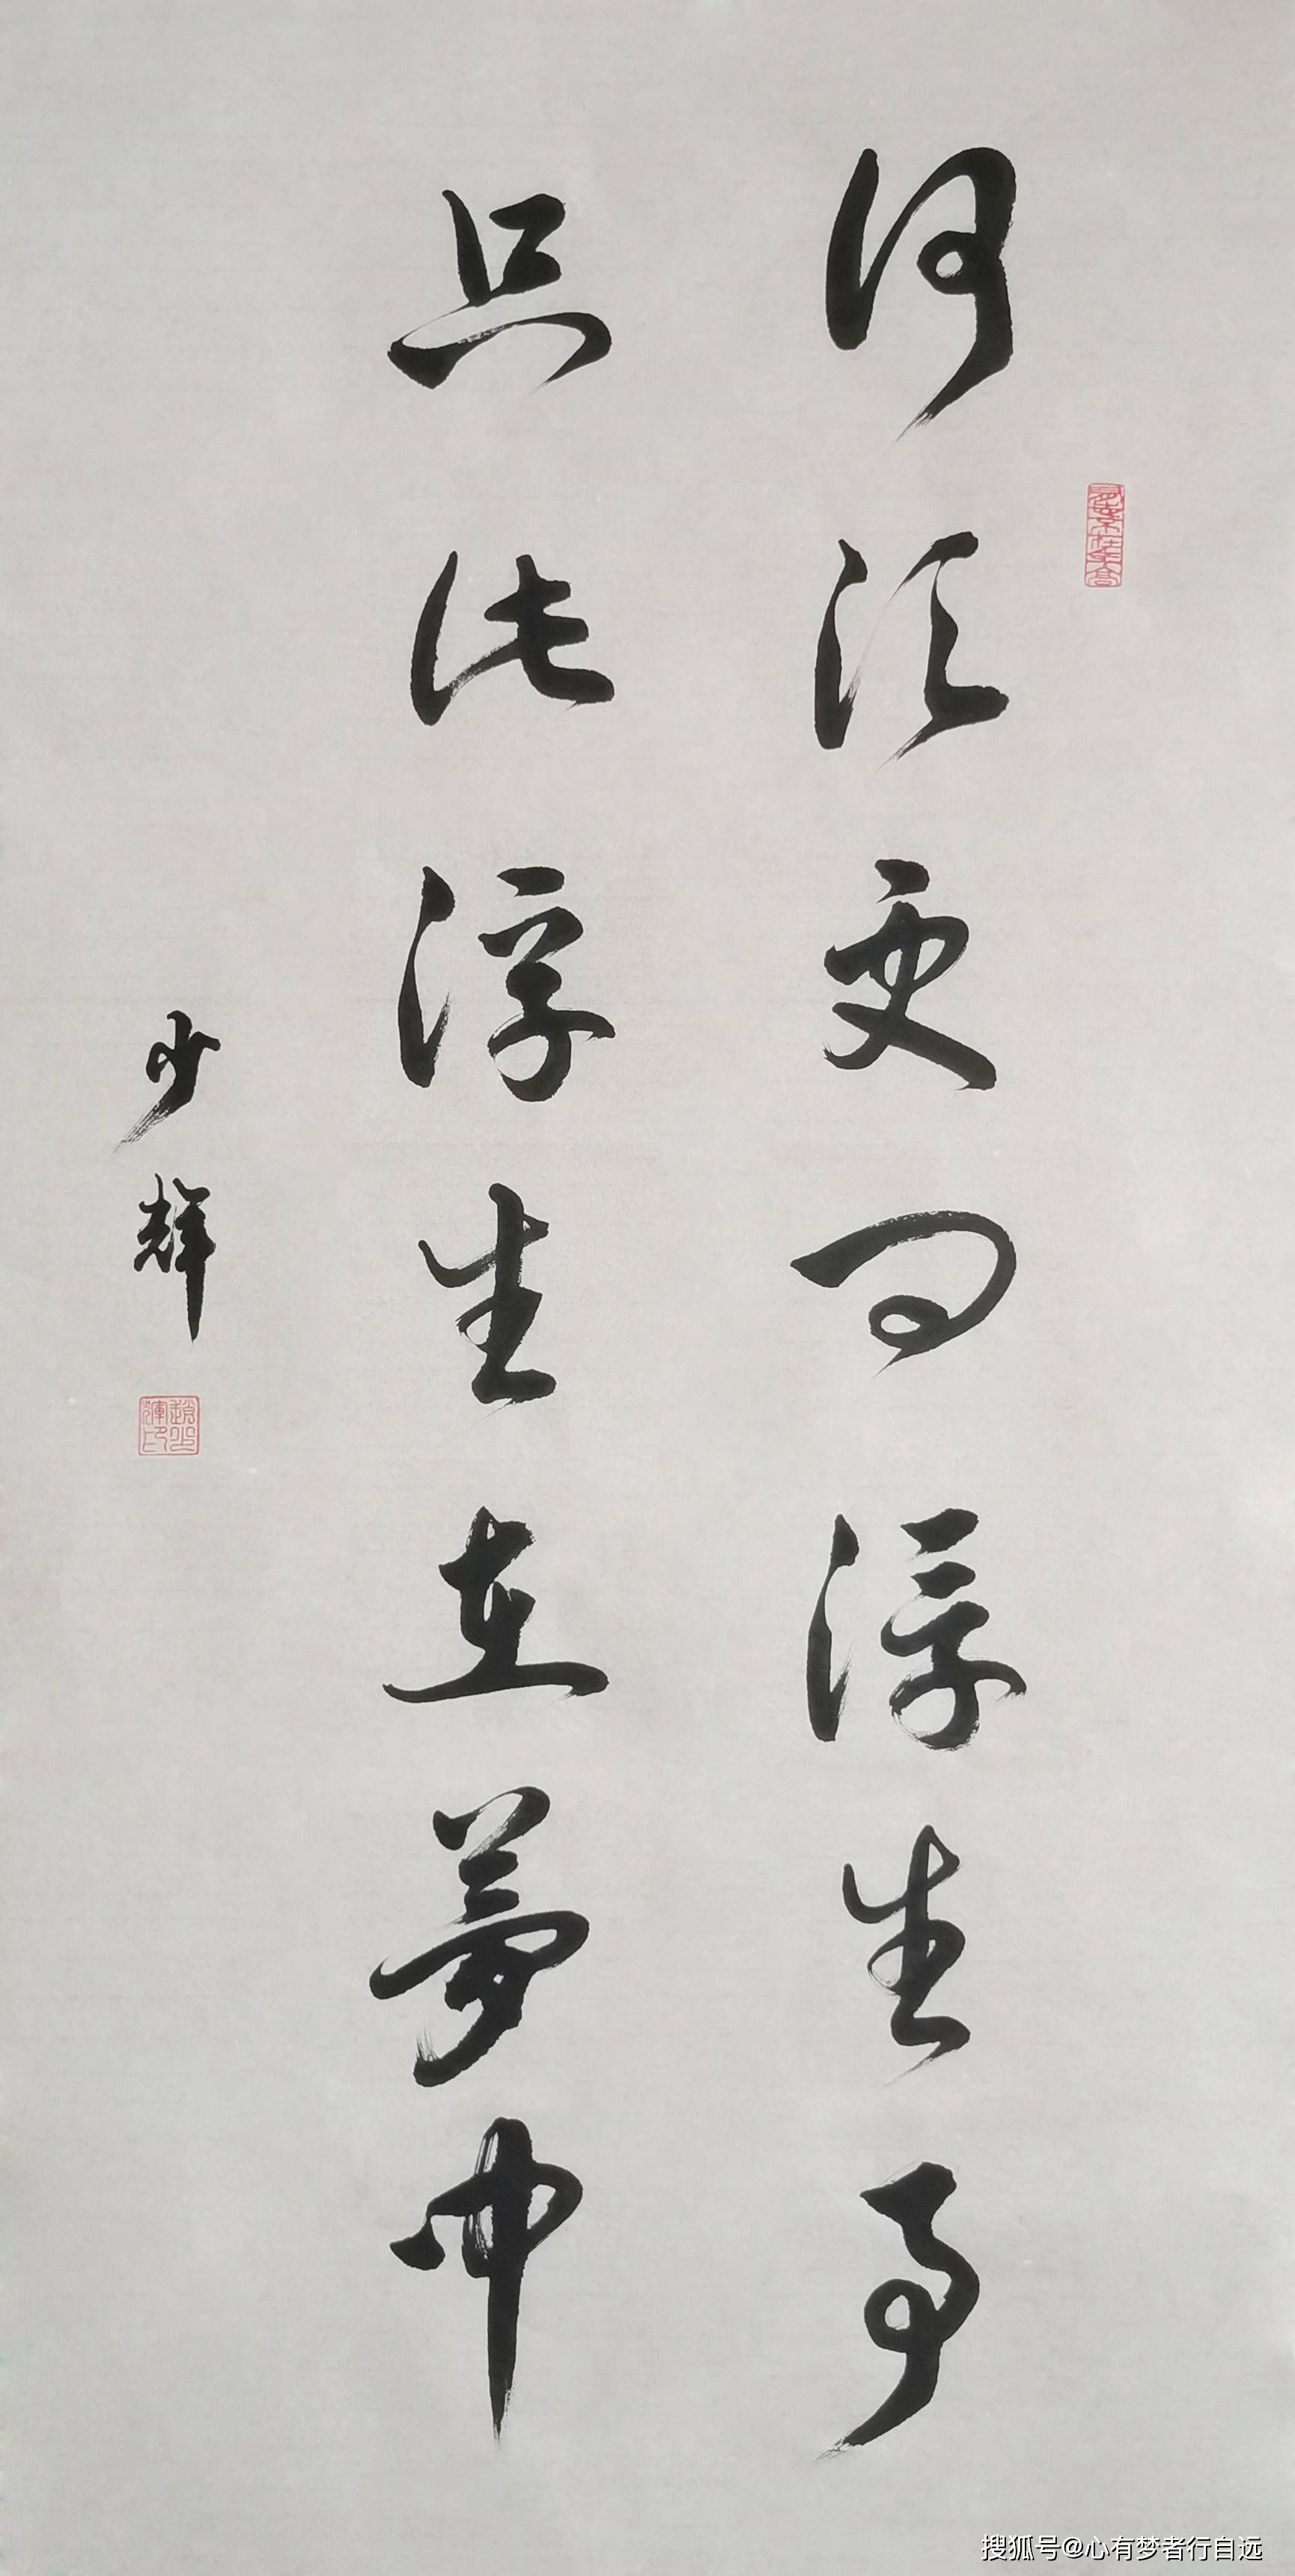 何須更問浮生事
只此浮生在夢中
少輝
趙少輝印
搜狐号@心有梦者行自远